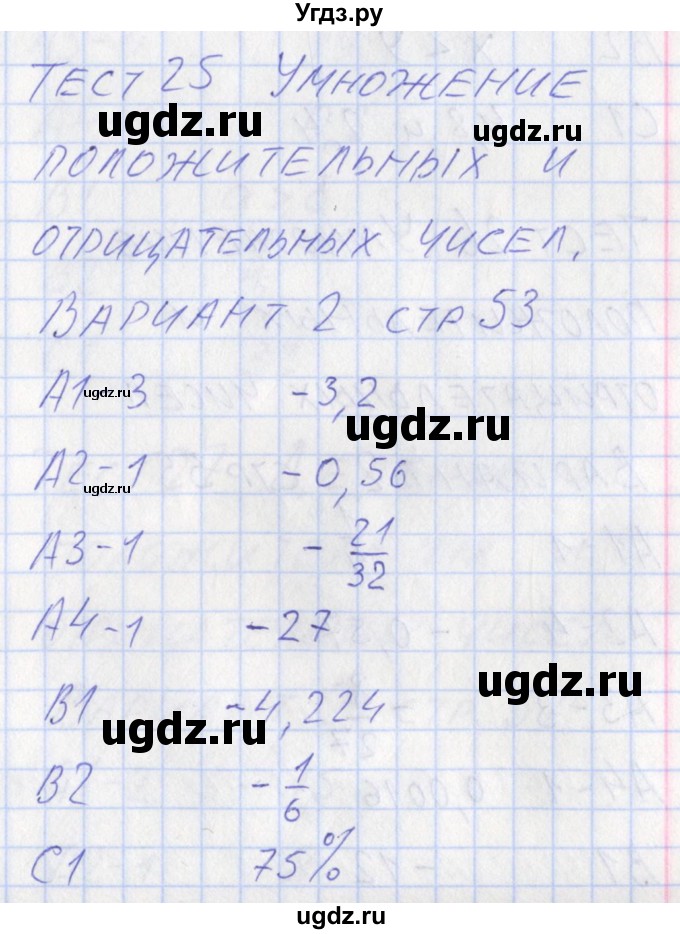 Угдз.ру
ТЕСТ 25 УМНОЖЕНИЕ
ugdz.ru ugdz.ru
ПОЛОЖИТЕЛЬНЫХ И
ОТРИЦАТЕЛЬНЫХ ЧИСЕЛ.
ВАРИАНТ 2 СТР 53
А1-3 -3,2
ugdz.ru ugdz.ru
А2-1 -0,56
ugdz.ru
А3-1 -21/32
А4-1 -27
ugdz.ru
В1 -4,224
ugdz.ru
В2 -1/6
С1 75%
ugdz.ru